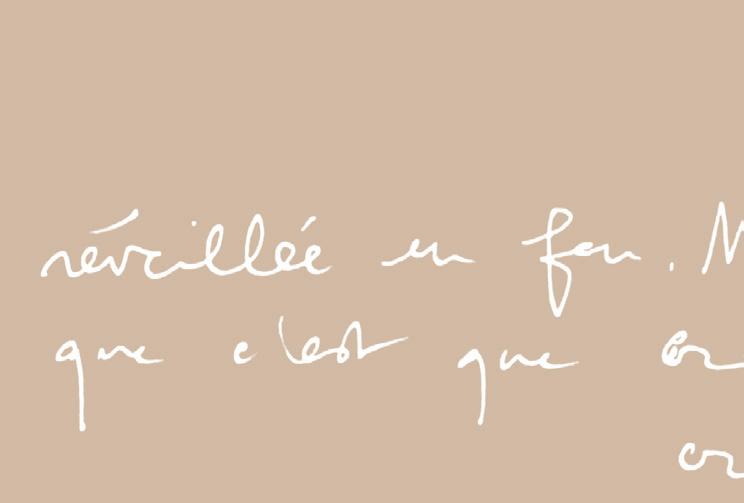 réveillée en feu. M
que c'est que